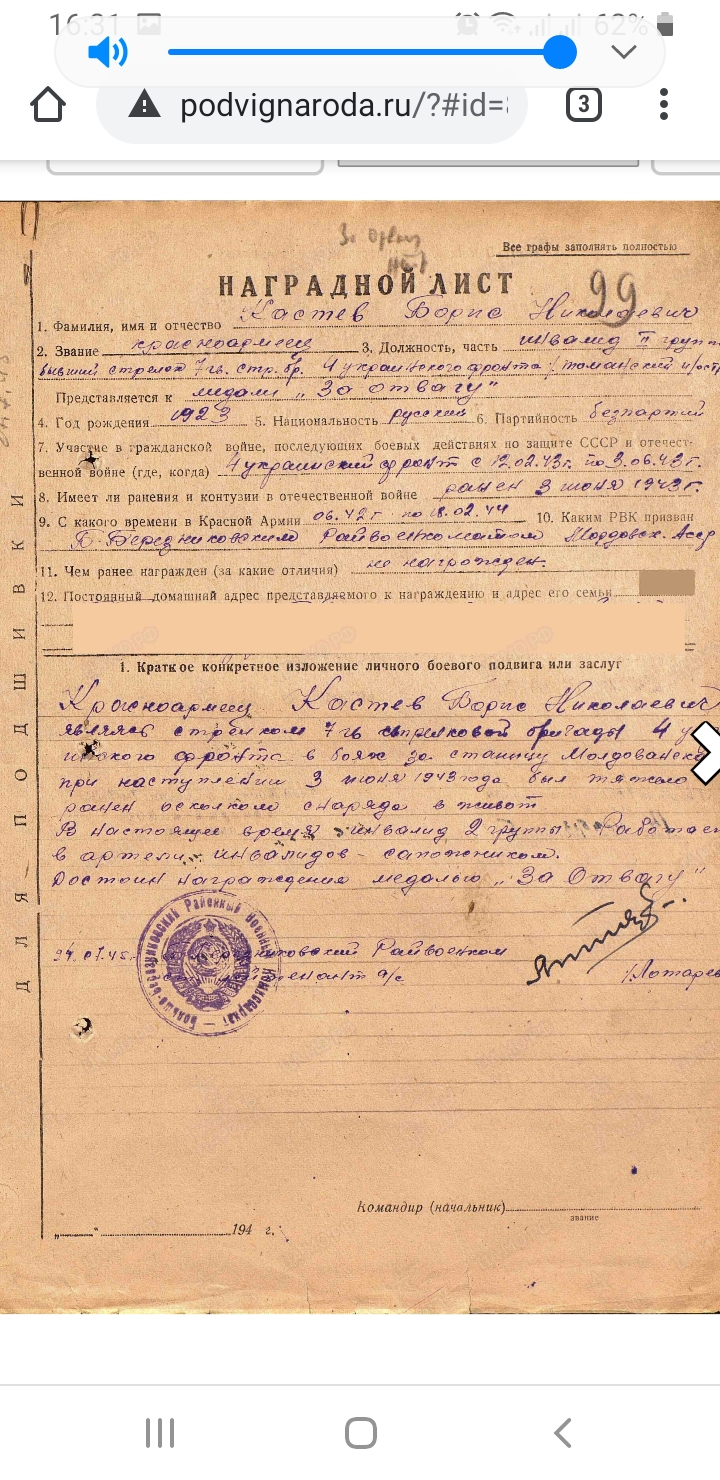 16:31
62%
podvignaroda.ru/?#id=
3
Все графы заполнять полностью
НАГРАДНОЙ ЛИСТ
99
1. Фамилия, имя и отчество Кастев Борис Николаевич
2. Звание красноармеец 3. Должность, часть инвалид II групп
бывший стрелок 7 гв. стр. бр. 4 украинского фронта
Представляется к медали „За отвагу"
4. Год рождения 1923 5. Национальность русский 6. Партийность безпартий
7. Участие в гражданской войне, последующих боевых действиях по защите СССР и отечест-
венной войне (где, когда) 4 украинский фронт с 12.02.43г. по 3.06.43г.
8. Имеет ли ранения и контузии в отечественной войне ранен 3 июня 1943г.
9. С какого времени в Красной Армии 06.42г по 18.02.44 10. Каким РВК призван
Б-Березниковским Райвоенкоматом Мордовск. Асср
11. Чем ранее награжден (за какие отличия) не награжден.
12. Постоянный домашний адрес представляемого к награждению и адрес его семьи
1. Краткое конкретное изложение личного боевого подвига или заслуг
Красноармеец Кастев Борис Николаевич
являясь стрелком 7 гв стрелковой бригады 4 ук
инского фронта в боях за станицу Молдованск
при наступлении 3 июня 1943 года был тяжело
ранен осколком снаряда в живот
В настоящее время инвалид 2 группы Работает
в артели инвалидов - сапожником.
Достоин награждения медалью „За Отвагу"
Райвоенком
Лотарев
Больше-Березниковский Районный Военный Комиссариат
Командир (начальник)
звание
„ " 194 г.
ДЛЯ ПОДШИВКИ